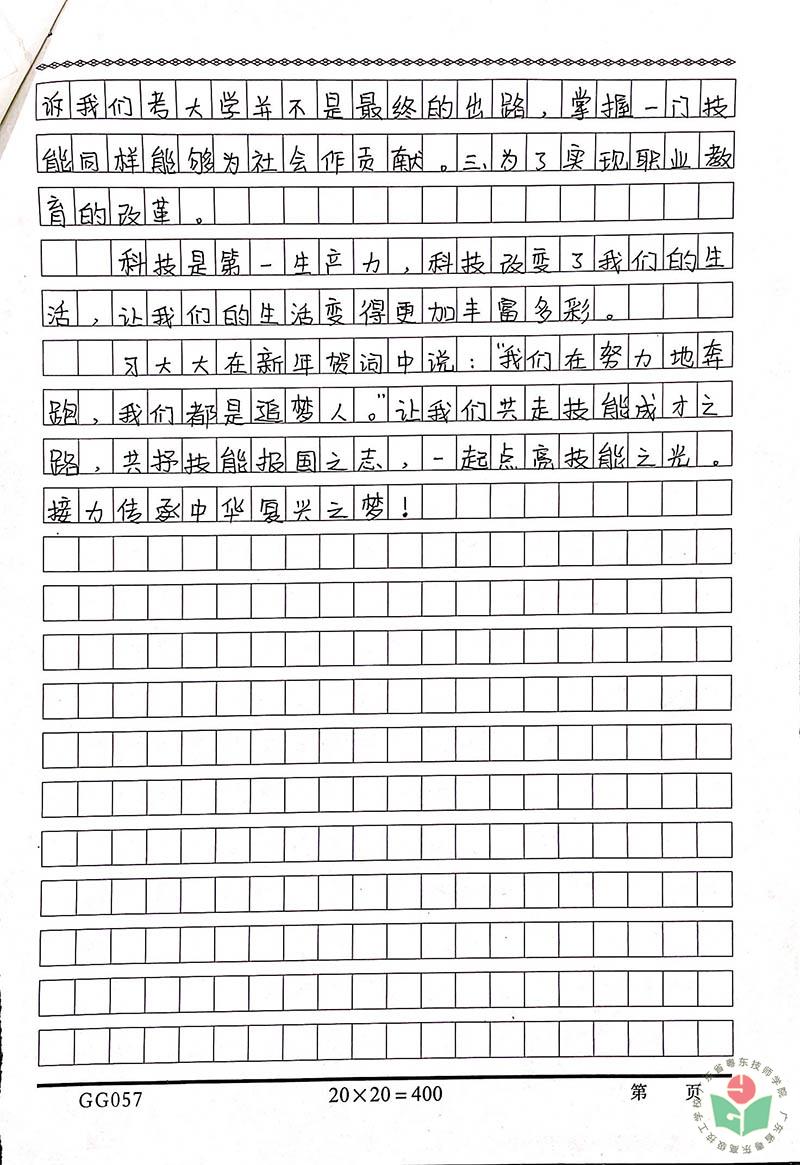 诉我们考大学并不是最终的出路，掌握一门技
能同样能够为社会作贡献。三、为了实现职业教
育的改革。
科技是第一生产力，科技改变了我们的生
活，让我们的生活变得更加丰富多彩。
习大大在新年贺词中说：“我们在努力地奔
跑，我们都是追梦人。”让我们共走技能成才之
路，共抒技能报国之志，一起点亮技能之光。
接力传承中华复兴之梦！
GG057 20×20=400 第 页
广东省粤东技师学院 广东省粤东高级技工学校